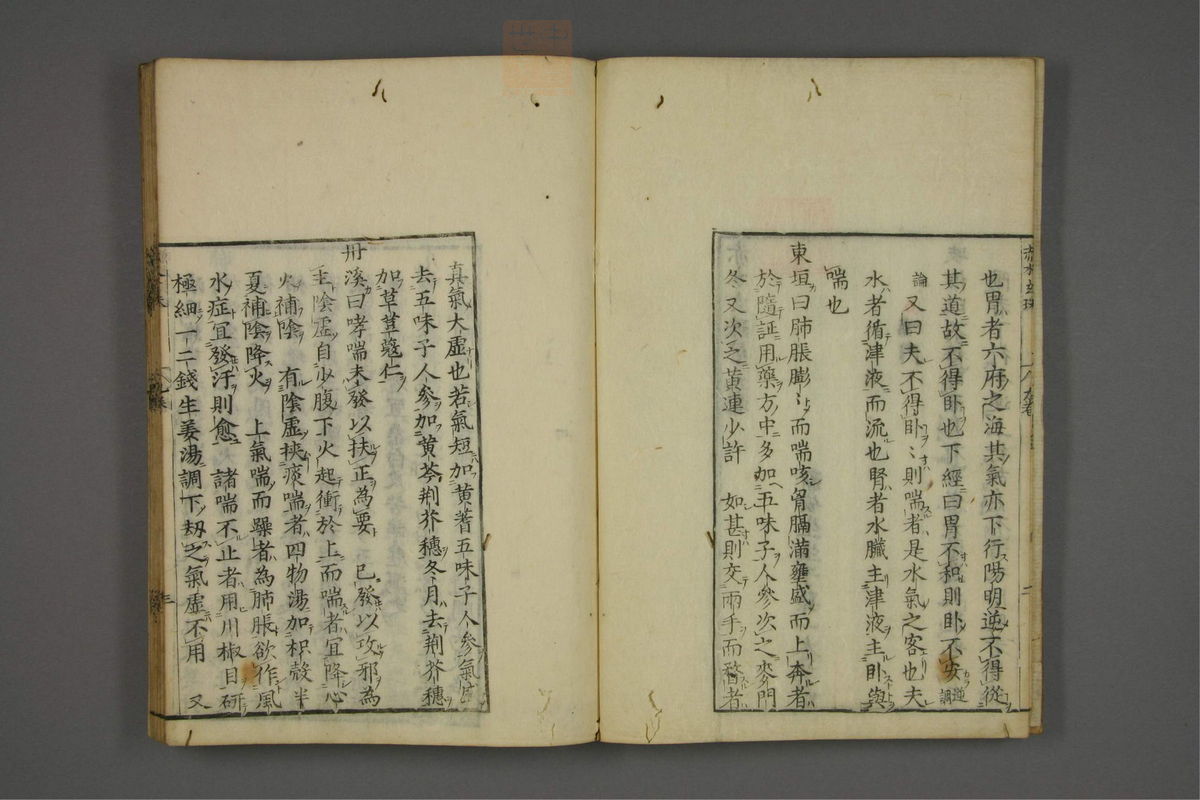 也胃者六府之海其氣亦下行陽明逆不得從
其道故不得卧也下經曰胃不和則卧不安逆調
論又曰夫不得卧〻則喘者是水氣之客也夫
水者循津液而流也腎者水臓主津液主卧與
喘也
東垣曰肺脹膨〻而喘咳胷膈滿壅盛而上奔者
於隨証用藥方中多加五味子人參次之麥門
冬又次之黄連少許　如甚則交兩手而瞀者
真氣大虚也若氣短加黄耆五味子人參氣盛
去五味子人參加黄芩荆芥穗冬月去荆芥穗
加草荳蔲仁
丹溪曰哮喘未發以扶正為要　已發以攻邪為
主陰虚自少腹下火起衝於上而喘者宜降心
火補陰　有陰虚挾痰喘者四物湯加枳殻半
夏補陰降火　上氣喘而躁者為肺脹欲作風
水症宜發汗則愈　諸喘不止者用川椒目研
極細一二錢生姜湯調下刼之氣虚不用　又